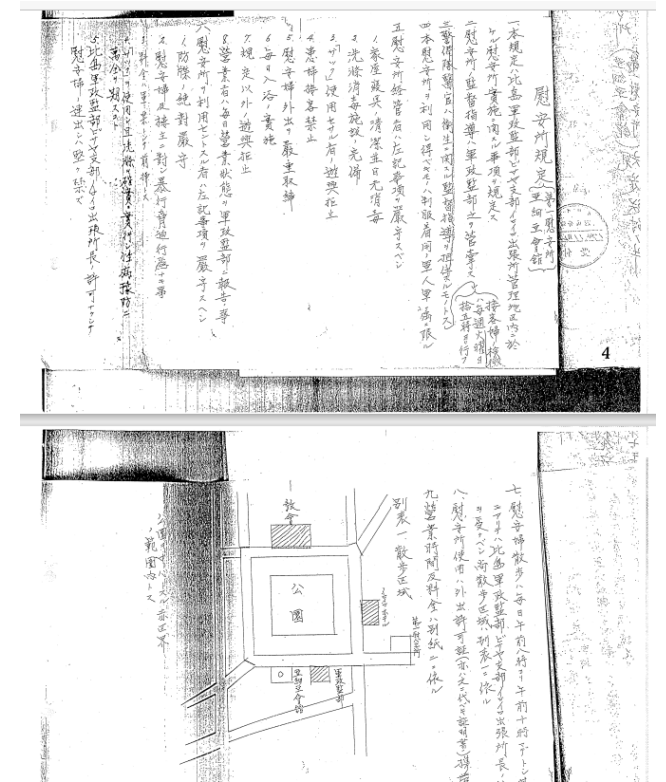 慰安所規定（第一慰安所
亜細亜會館）
一、本規定ハ比島軍政監部ビサヤ支部イロイロ出張所管理地区内ニ於
ケル慰安所実施ニ関スル事項ヲ規定ス
二、慰安所ノ監督指導ハ軍政監部之ヲ管掌ス
三、警備隊醫官ハ衛生ニ関スル監督指導ヲ担任スルモノトス
接客婦ノ検黴ハ毎週火曜日拾五時ヨリ行フ
四、本慰安所ヲ利用シ得ベキモノハ制服着用ノ軍人軍属ニ限ル
五、慰安所経営者ハ左記事項ヲ厳守スベシ
1. 家屋寝具ノ清潔並日光消毒
2. 洗滌消毒施設ノ完備
3. 「サック」使用セサル者ノ遊興拒止
4. 患婦接客禁止
5. 慰安婦外出ヲ厳重取締
6. 毎日入浴ノ実施
7. 規定以外ノ遊興拒止
8. 営業者ハ毎日営業状態ヲ軍政監部ニ報告ノ事
六、慰安所ヲ利用セントスル者ハ左記事項ヲ厳守スベシ
1. 防諜ノ絶対厳守
2. 慰安婦及楼主ニ対シ暴行脅迫行為ナキ事
3. 料金ハ軍票トシテ前拂トス
4. 「サック」ヲ使用シ且洗滌ヲ確実ニ実行シ性病予防ニ
萬全ヲ期スコト
5. 比島軍政監部ビサヤ支部イロイロ出張所長ノ許可ナクシテ
慰安婦ノ連出シハ堅ク禁ズ
4
七、慰安婦散歩ハ毎日午前八時ヨリ午前十時マデトシ
ニアリテハ比島軍政監部ビサヤ支部イロイロ出張所長ノ
ヲ受クベシ尚散歩区域ハ別表一ニ依ル
八、慰安所使用ハ外出許可証（亦ハ之ニ代ベキ証明書）
九、営業時間及料金ハ別紙ニ依ル
別表一 散歩区域
教會
公園
第一慰安所
軍政監部
亜細亜会館
範囲内トス